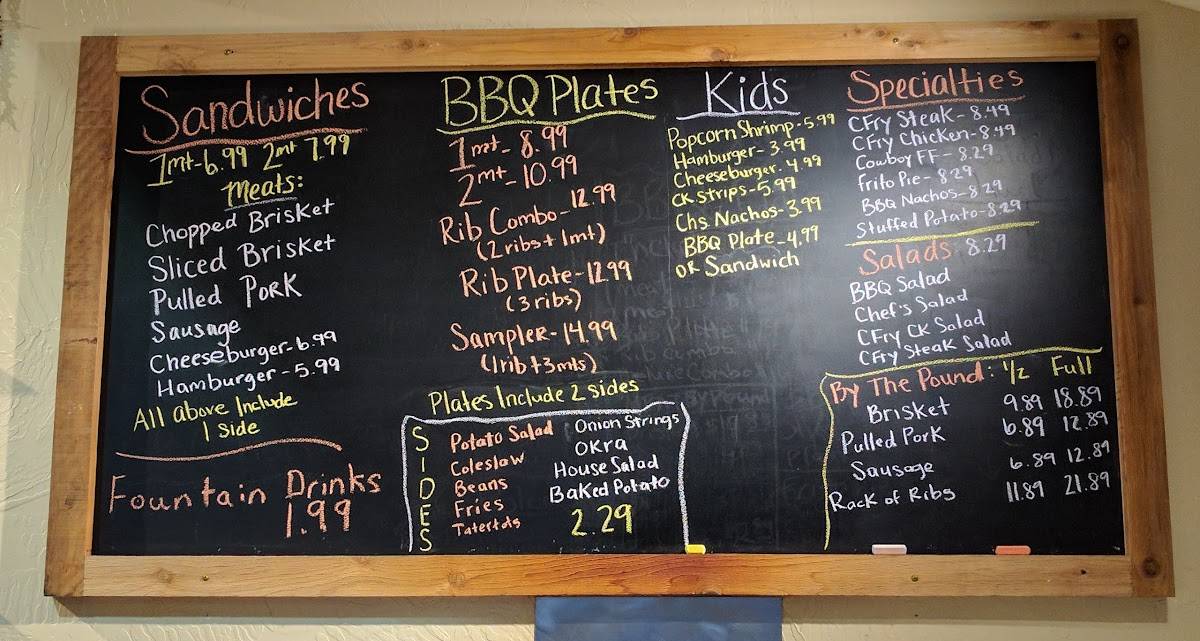 Sandwiches
1mt-6.99 2mt 7.99
Meats:
Chopped Brisket
Sliced Brisket
Pulled Pork
Sausage
Cheeseburger-6.99
Hamburger-5.99
All above Include
1 Side
Fountain Drinks
1.99
BBQ Plates
1mt- 8.99
2mt- 10.99
Rib Combo-12.99
(2ribs+ 1mt)
Rib Plate-12.99
(3ribs)
Sampler-14.99
(1rib+3mts)
Plates Include 2 sides
SIDES
Potato Salad
Coleslaw
Beans
Fries
Tatertots
Onion Strings
Okra
House Salad
Baked Potato
2.29
Kids
Popcorn Shrimp-5.99
Hamburger-3.99
Cheeseburger-4.99
CK Strips-5.99
Chs Nachos-3.99
BBQ Plate-4.99
OR Sandwich
Specialties
CFry Steak-8.49
CFry Chicken-8.49
Cowboy FF-8.29
Frito Pie-8.29
BBQ Nachos-8.29
Stuffed Potato-8.29
Salads 8.29
BBQ Salad
Chef's Salad
CFry CK Salad
CFry Steak Salad
By The Pound: 1/2 Full
Brisket 9.89 18.89
Pulled Pork 6.89 12.89
Sausage 6.89 12.89
Rack of Ribs 11.89 21.89